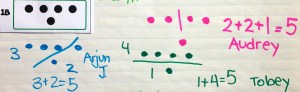 1B
2+2+1=5
Audrey
3
2
Arjun
I
3+2=5
4
1
1+4=5 Tobey